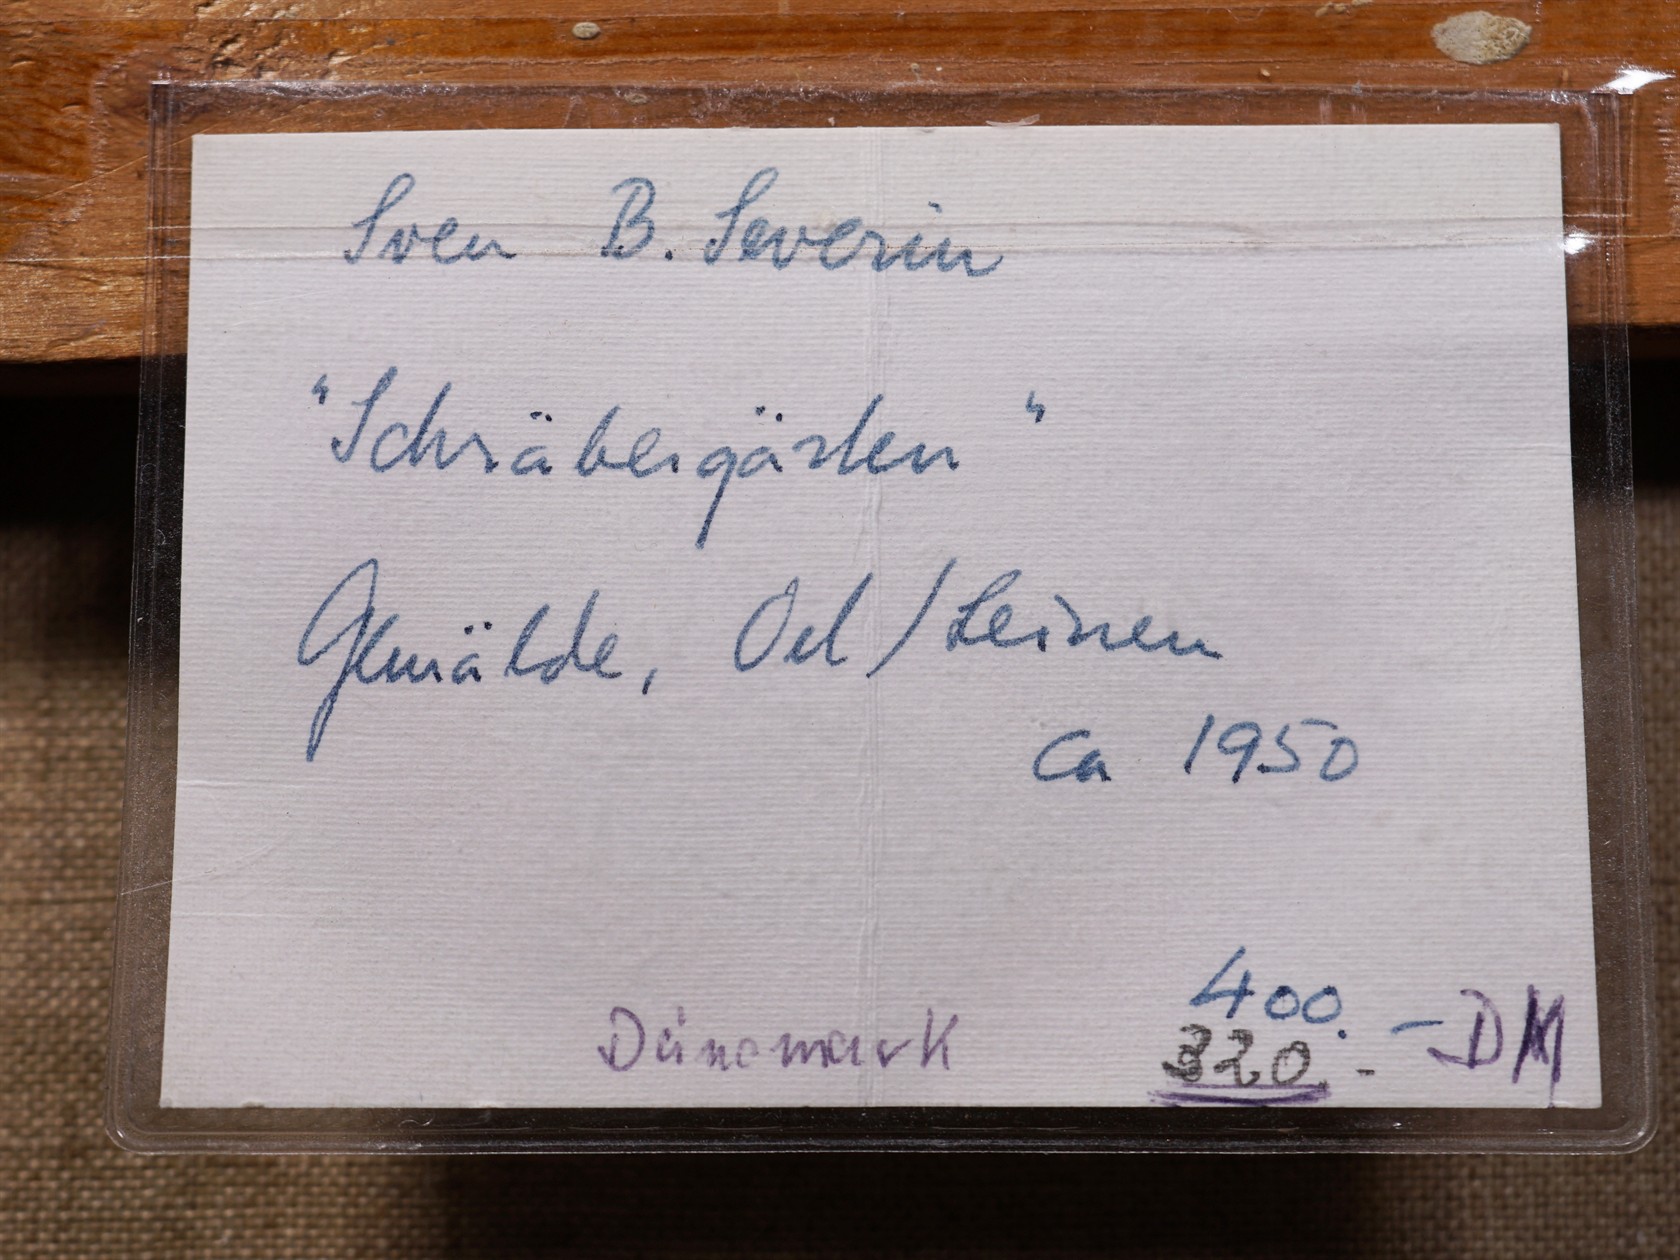 Sven B. Severin
"Schräbergärten"
Gemälde, Oel/Leinen
ca 1950
400.-DM
Dänemark 320.-